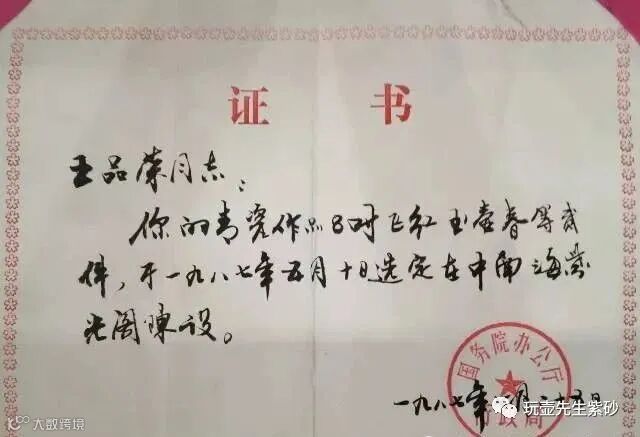 证 书
王品荣同志：
你的青瓷作品8吋飞红玉壶春等贰
件，于一九八七年五月十日选定在中南海紫
光阁陳设。
国务院办公厅
政局
一九八七年 月二十五日
大数跨境
玩壶先生紫砂